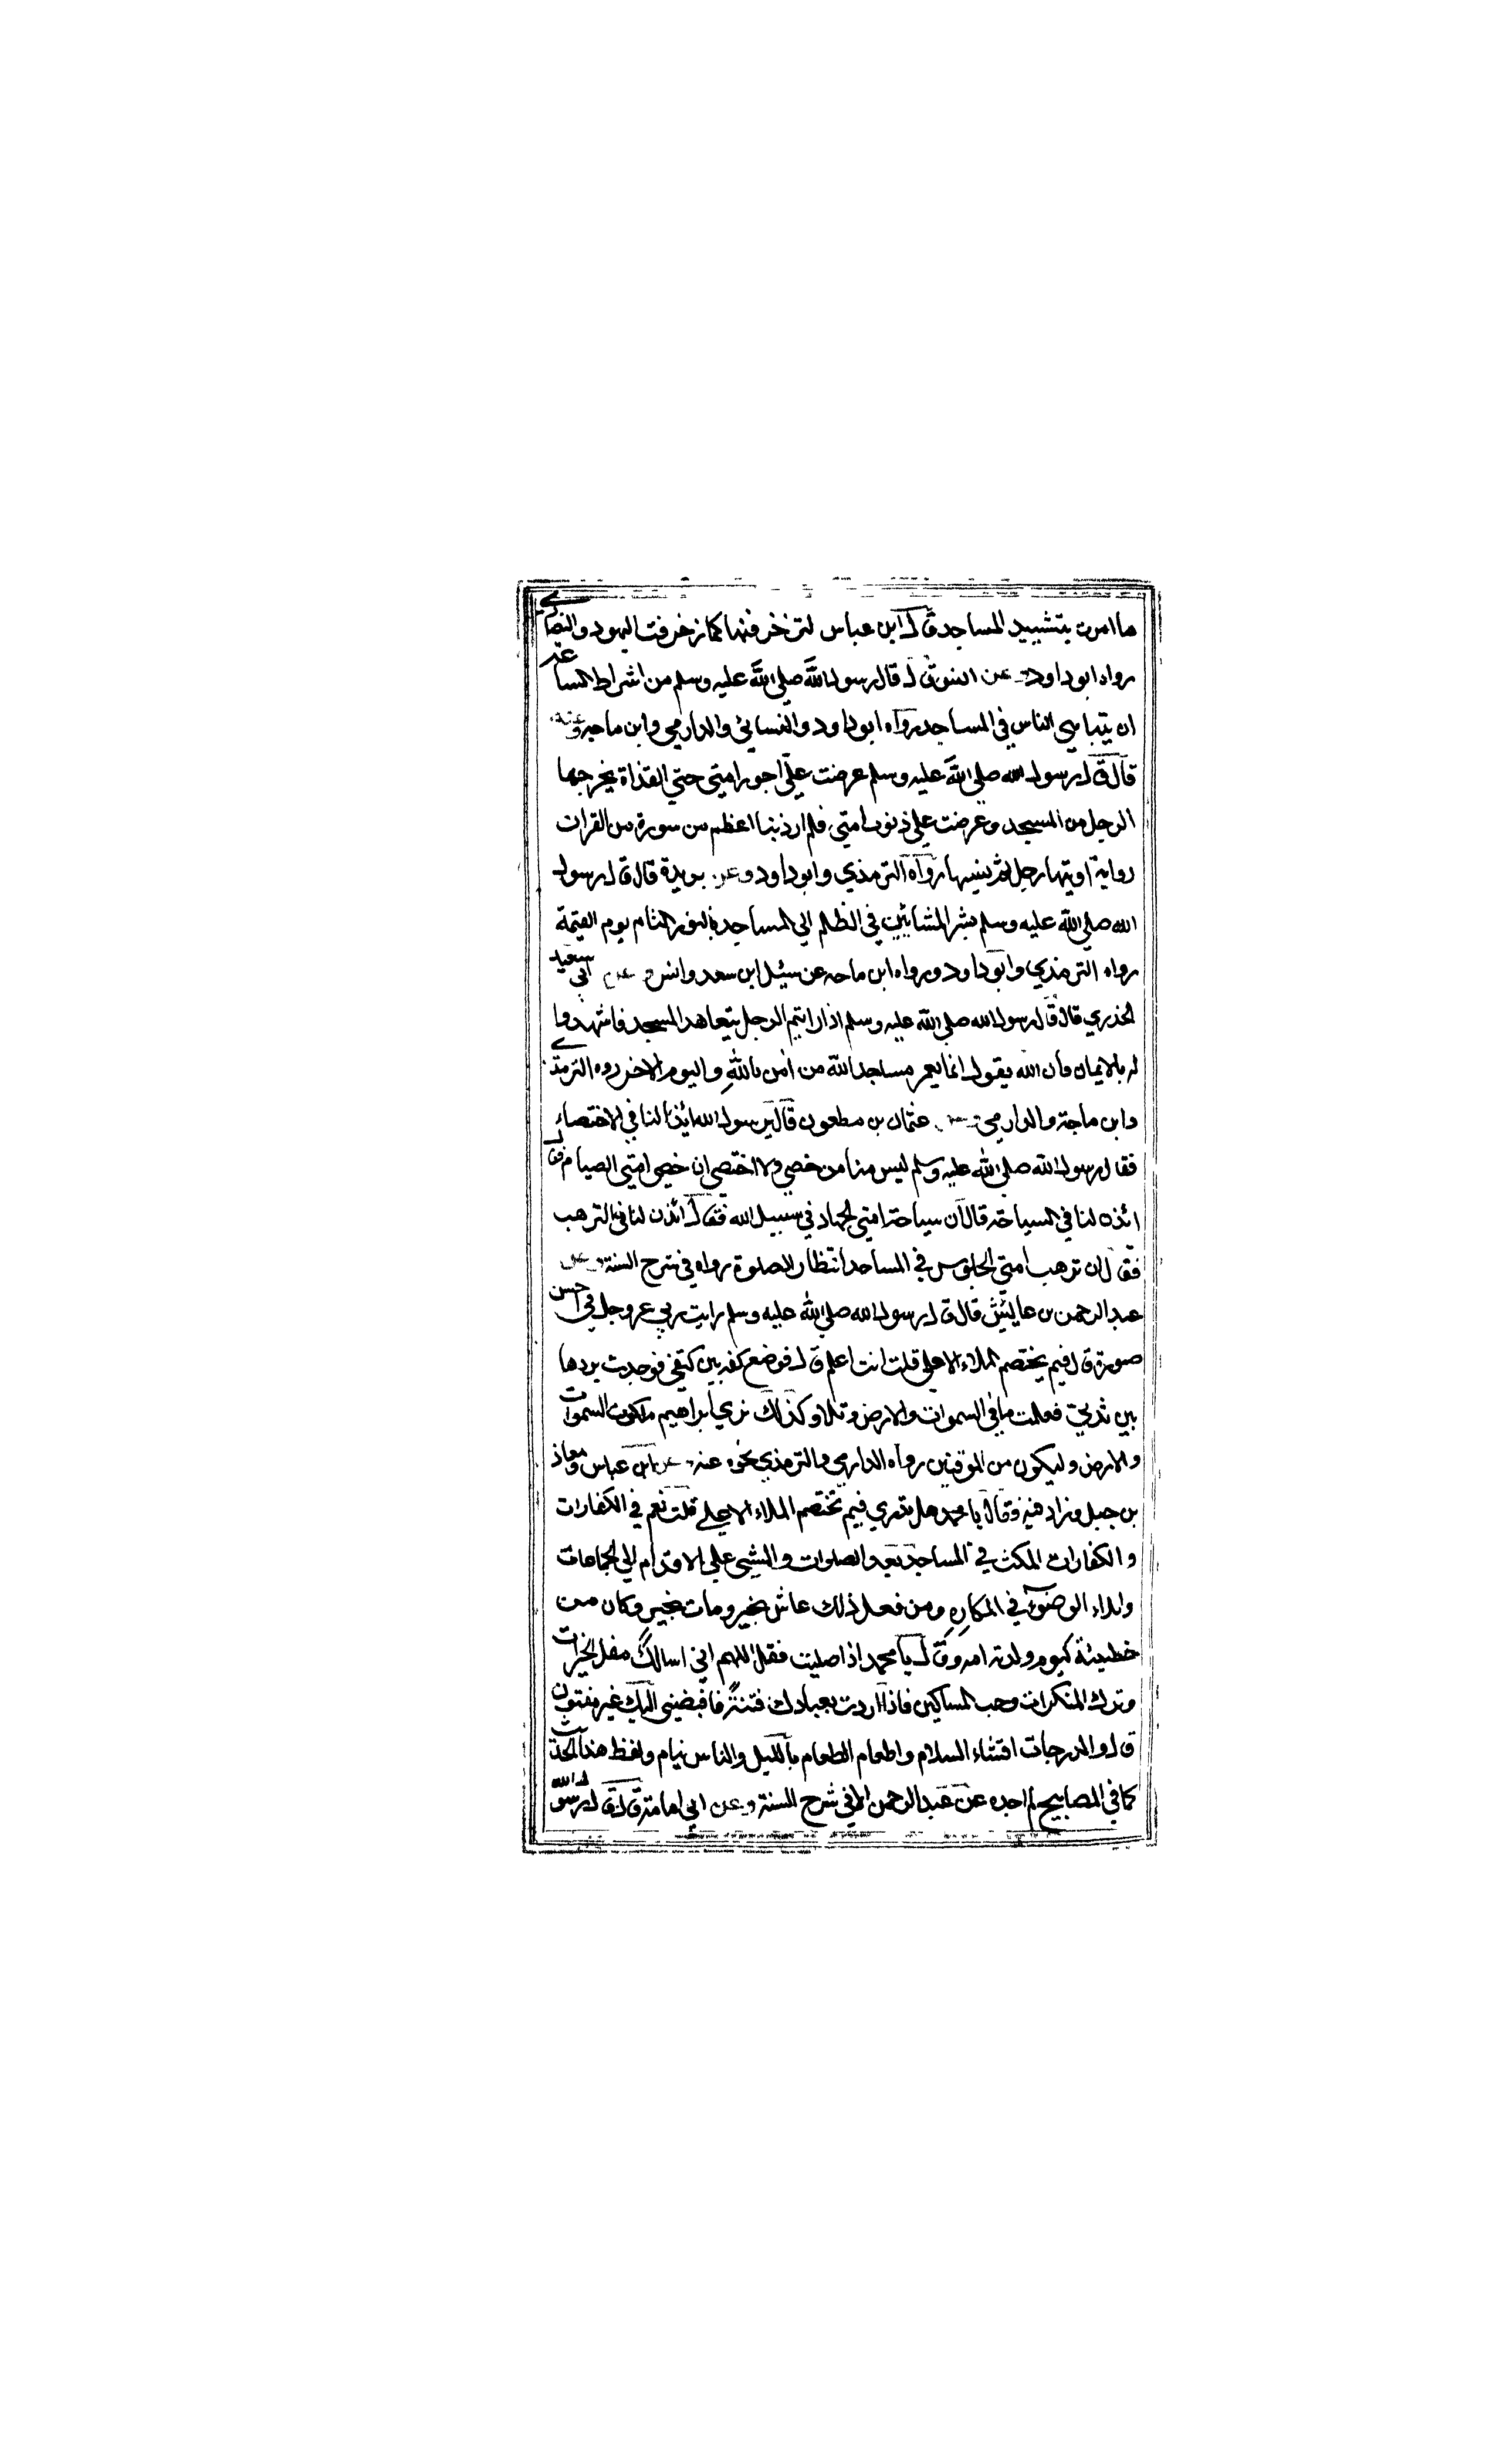 ما امرت بتشييد المساجد قال ابن عباس لتزخرفنها كما زخرفت اليهود والنصارى
رواه ابوداود وعن انس قال قال رسول الله صلي الله عليه وسلم من اشراط الساعة
ان يتباهي الناس في المساجد رواه ابوداود والنسائي والدارمي وابن ماجه وعنه
قال قال رسول الله صلي الله عليه وسلم عرضت علي اجور امتي حتي القذاة يخرجها
الرجل من المسجد وعرضت علي ذنوب امتي فلم ار ذنبا اعظم من سورة من القران
رواية اوتيها رجل ثم نسيها رواه الترمذي وابوداود وعن بريدة قال قال رسول
الله صلي الله عليه وسلم بشر المشائين في الظلم الي المساجد بالنور التام يوم القيمة
رواه الترمذي وابوداود ورواه ابن ماجه عن سهل ابن سعد وانس وعن ابي سعيد
الخذري قال قال رسول الله صلي الله عليه وسلم اذا رايتم الرجل يتعاهد المسجد فاشهدوا
له بالايمان فان الله يقول انما يعمر مساجد الله من امن بالله واليوم الاخر روه الترمذي
وابن ماجة والدارمي وعن عثمان بن مطعون قال يرسول الله ائذن لنا في الاختصاء
فقال رسول الله صلي الله عليه وسلم ليس منا من خصي ولا اختصي ان خصي امتي الصيام فقال
ائذن لنا في السياحة قال ان سياحة امتي الجهاد في سبيل الله فقال ائذن لنا في الترهب
فقال ان ترهب امتي الجلوس في المساجد انتظار الصلوة رواه في شرح السنة وعن
عبد الرحمن بن عايش قال قال رسول الله صلي الله عليه وسلم رايت ربي عز وجل في احسن
صورة قال فيم يختصم الملاء الاعلي قلت انت اعلم قال فوضع كفه بين كتفي فوجدت بردها
بين ثديي فعلمت ما في السموات والارض وتلا وكذلك نري ابراهيم ملكوت السموات
والارض وليكون من الموقنين رواه الدارمي والترمذي نحوه عنه وعن ابن عباس ومعاذ
بن جبل وزاد فيه وقال يا محمد هل تدري فيم تختصم الملاء الاعلي قلت نعم في الكفارات
والكفارات المكث في المساجد بعد الصلوات والمشي علي الاقدام الي الجماعات
وابلاء الوضوء في المكاره ومن فعل ذلك عاش بخير ومات بخير وكان من
خطيئة كيوم ولدته امه وقال يا محمد اذا صليت فقل اللهم اني اسالك فعل الخيرات
وترك المنكرات وحب المساكين فاذا اردت بعبادك فتنة فاقبضني اليك غير مفتون
قال والدرجات افشاء السلام واطعام الطعام بالليل والناس نيام ولفظ هذا الحديث
كما في المصابيح لم اجده عن عبد الرحمن الا في شرح السنة وعن ابي امامة قال قال رسول الله